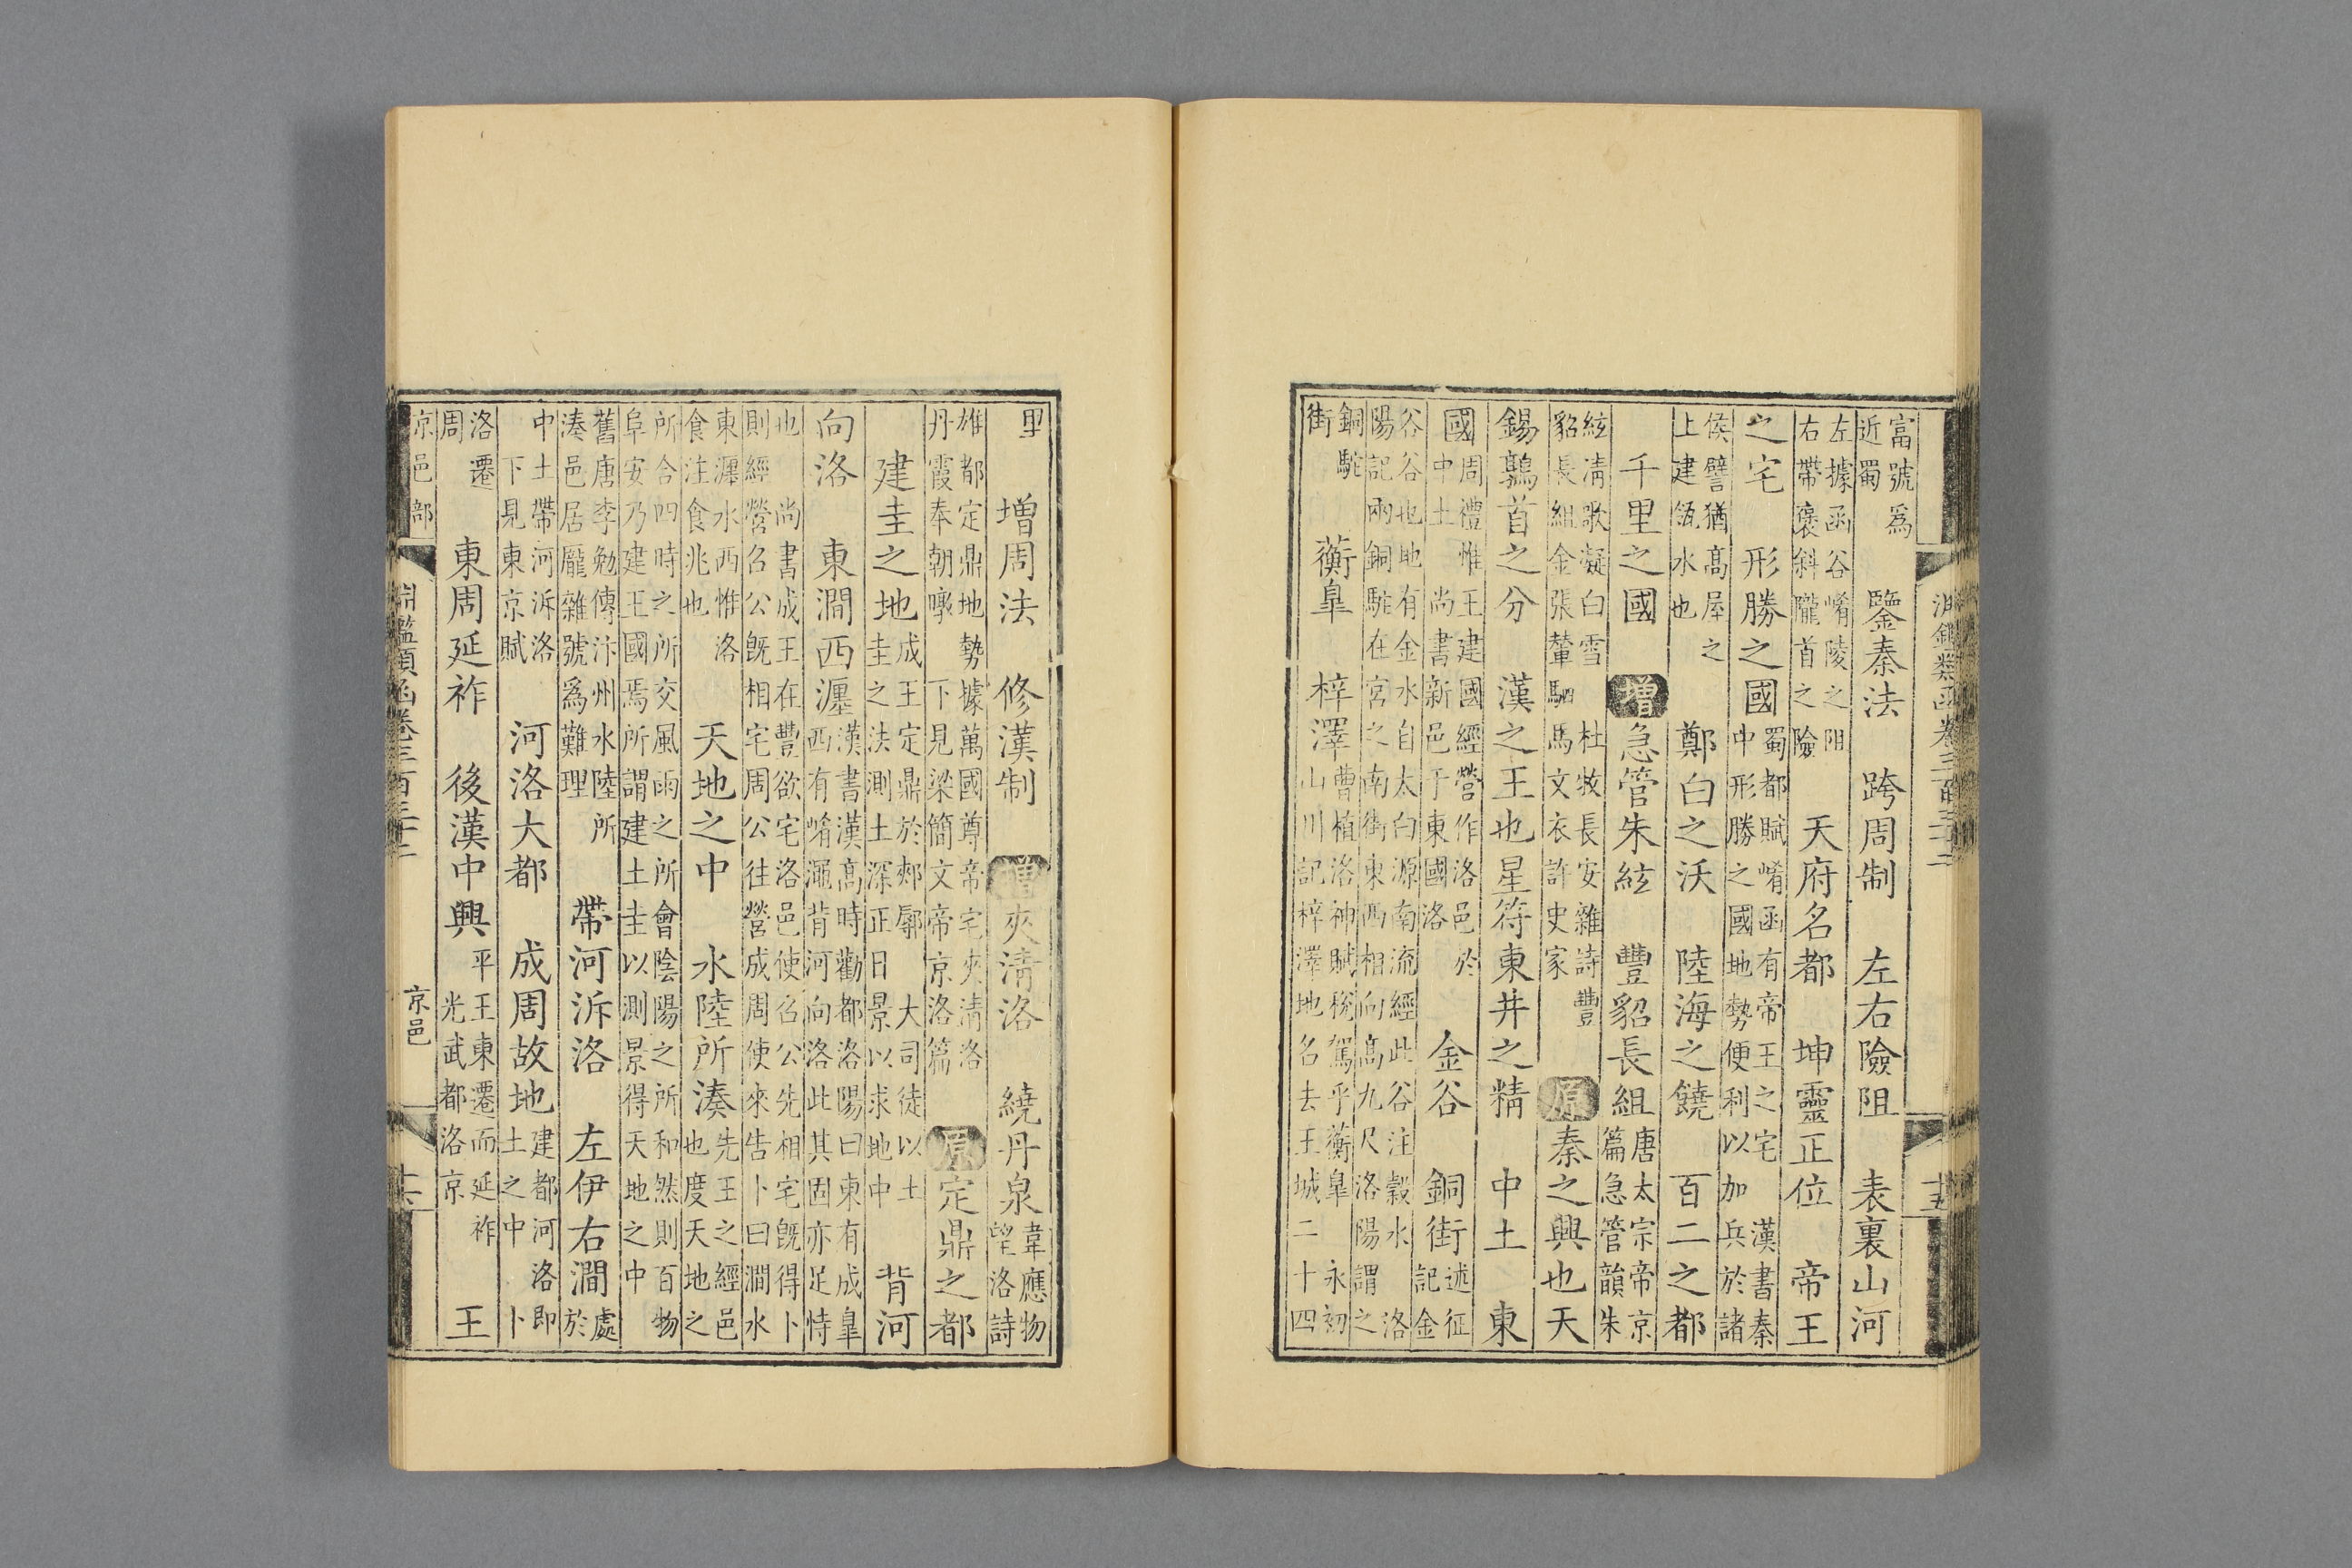 富號爲
近蜀
鑒秦法　跨周制　左右險阻　表裏山河
左據函谷崤陵之阻
右帶褒斜隴首之險
天府名都　坤靈正位　帝王
之宅　形勝之國
蜀都賦崤函有帝王之宅　漢書秦
中形勝之國地勢便利以加兵於諸
侯譬猶高屋之
上建瓴水也
鄭白之沃　陸海之饒　百二之都
千里之國　增急管朱絃　豐貂長組
唐太宗帝京
篇急管韻朱
絃清歌凝白雪　杜牧長安雜詩豐
貂長組金張輦駟馬文衣許史家
原秦之興也天
錫鶉首之分　漢之王也星符東井之精　中土　東
國
周禮惟王建國經營作洛邑於
中土　尚書新邑于東國洛
金谷　銅街
述征
記金
谷谷地也地有金水自太白源南流經此谷注穀水　洛
陽記兩銅駝在宮之南街東西相向高九尺洛陽謂之
銅駝
街
蘅皐　梓澤
曹植洛神賦稅駕乎蘅皐　永初
山川記梓澤地名去王城二十四
里　增周法　修漢制　增夾清洛　繞丹泉
韋應物
望洛詩
雄都定鼎地勢據萬國尊帝宅夾清洛
丹霞奉朝暾　下見梁簡文帝京洛篇
原定鼎之都
建圭之地
成王定鼎於郟鄏　大司徒以土
圭之法測土深正日景以求地中
背河
向洛　東澗西瀍
漢書漢高時勸都洛陽曰東有成皐
西有崤澠背河向洛此其固亦足恃
也　尚書成王在豐欲宅洛邑使召公先相宅旣得卜
則經營召公旣相宅周公往營成周使來告卜曰澗水
東瀍水西惟洛
食注食兆也
天地之中　水陸所湊
先王之經邑
也度天地之
所合四時之所交風雨之所會陰陽之所和然則百物
阜安乃建王國焉所謂建土圭以測景得天地之中
舊唐李勉傳汴州水陸所
湊邑居龐雜號爲難理
帶河泝洛　左伊右澗
處
於
中土帶河泝洛
下見東京賦
河洛大都　成周故地
建都河洛即
土之中　卜
洛遷
周
東周延祚　後漢中興
平王東遷而延祚
光武都洛京
王
京邑部
京邑